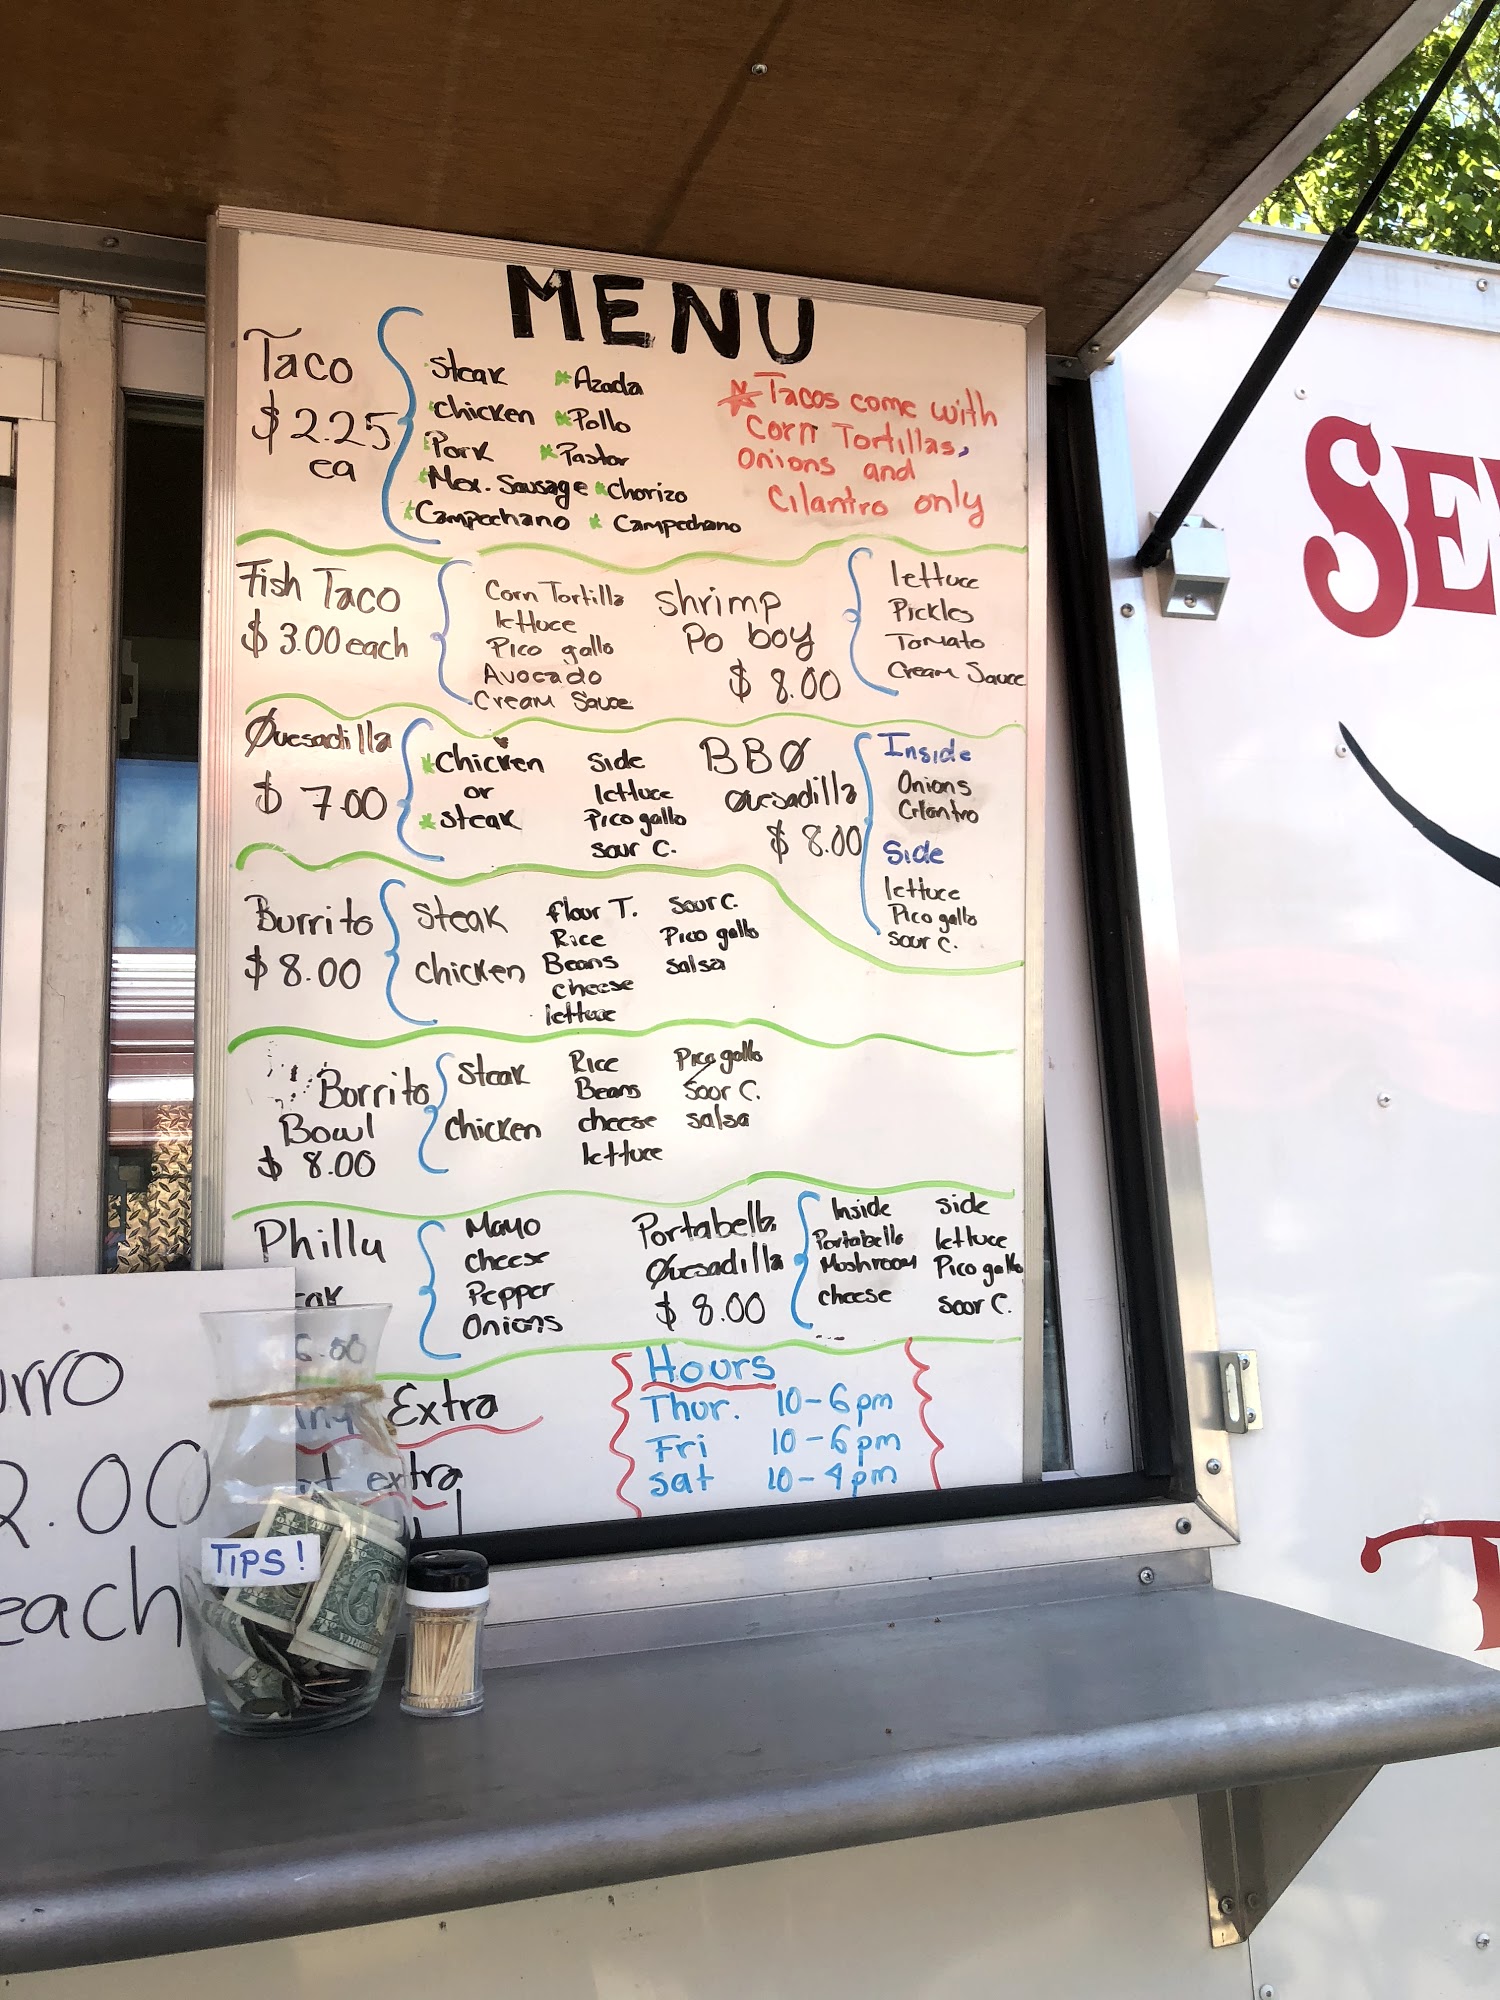 MENU
Taco
$2.25
ea
Steak * Azada
*chicken *Pollo
*Pork *Pastor
*Mex. Sausage *Chorizo
*Campechano * Campechano
*Tacos come with
Corn Tortillas,
Onions and
Cilantro only
Fish Taco
$3.00 each
Corn Tortilla
lettuce
Pico gallo
Avocado
Cream Sauce
Shrimp
Po boy
$8.00
lettuce
Pickles
Tomato
Cream Sauce
Quesadilla
$7.00
*Chicken
or
*Steak
Side
lettuce
Pico gallo
sour C.
BBQ
Quesadilla
$8.00
Inside
Onions
Cilantro
Side
lettuce
Pico gallo
sour C.
Burrito
$8.00
Steak
chicken
flour T.
Rice
Beans
cheese
lettuce
sour C.
Pico gallo
salsa
Borrito
Bowl
$8.00
Steak
chicken
Rice
Beans
cheese
lettuce
Pico gallo
Soor C.
salsa
Philly
Mayo
cheese
Pepper
Onions
Portabella
Quesadilla
$8.00
Inside
Portabello
Moshroom
cheese
side
lettuce
Pico gallo
soor C.
6.00
Extra
extra
Hours
Thur. 10-6pm
Fri 10-6pm
Sat 10-4pm
urro
2.00
each
TIPS!
SE
T